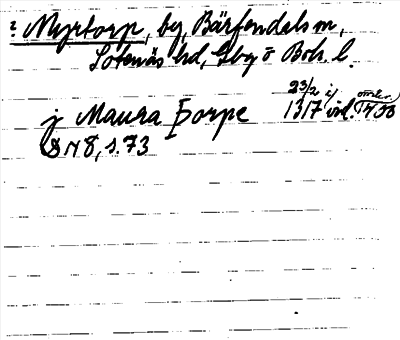 ? Myrtorp, by, Bärfendals sn,
Sotenäs hd, Gbg o Boh. l.
j Maura Þorpe 23/2 1317 i vid.
DN 8, s. 73